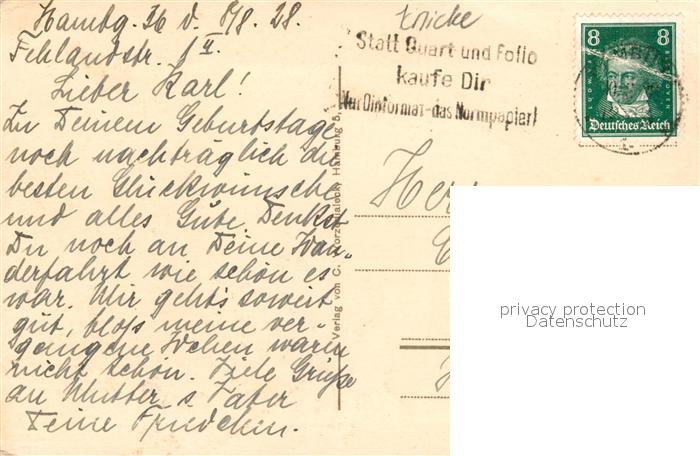 Hambg. 36 d. 8/8. 28.
Fehlandstr. 1 II.
Lieber Karl!
Zu Deinem Geburtstage
noch nachträglich die
besten Glückwünsche
und alles Gute. Denkst
Du noch an Deine Wan-
derfahrt wie schön es
war. Mir geht's soweit
gut, blos meine ver-
gangene Wochen waren
nicht schön. Viele Grüße
an Mutter & Vater
Deine Friedchen.
knicke
Statt Quart und Folio
kaufe Dir
Nur Dinformat-das Normpapier!
8 8
LUDW. VAN
Deutsches Reich
Verlag von C. Worzedialeck, Hamburg 5,
Herr
privacy protection
Datenschutz